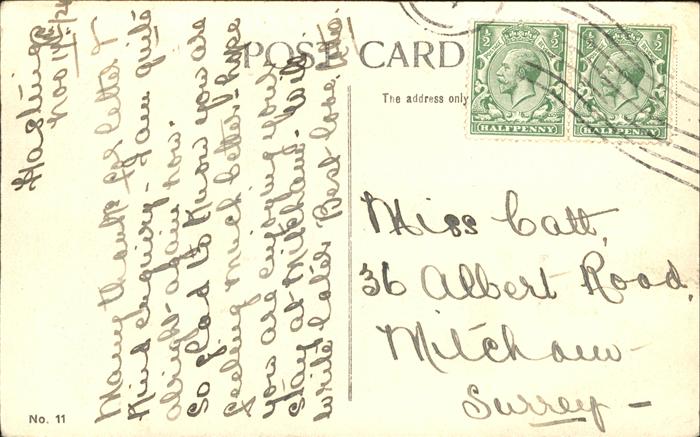 POST CARD
The address only
½ ½
HALFPENNY
½ ½
HALFPENNY
Hastings
Nov 19th/24
Many thanks for letter &
kind enquiry - I am quite
alright again now.
So glad to know you are
feeling much better - hope
you are enjoying your
stay at Mitcham. Will
write later Best love
Miss Catt,
36 Albert Road,
Mitcham
Surrey -
No. 11